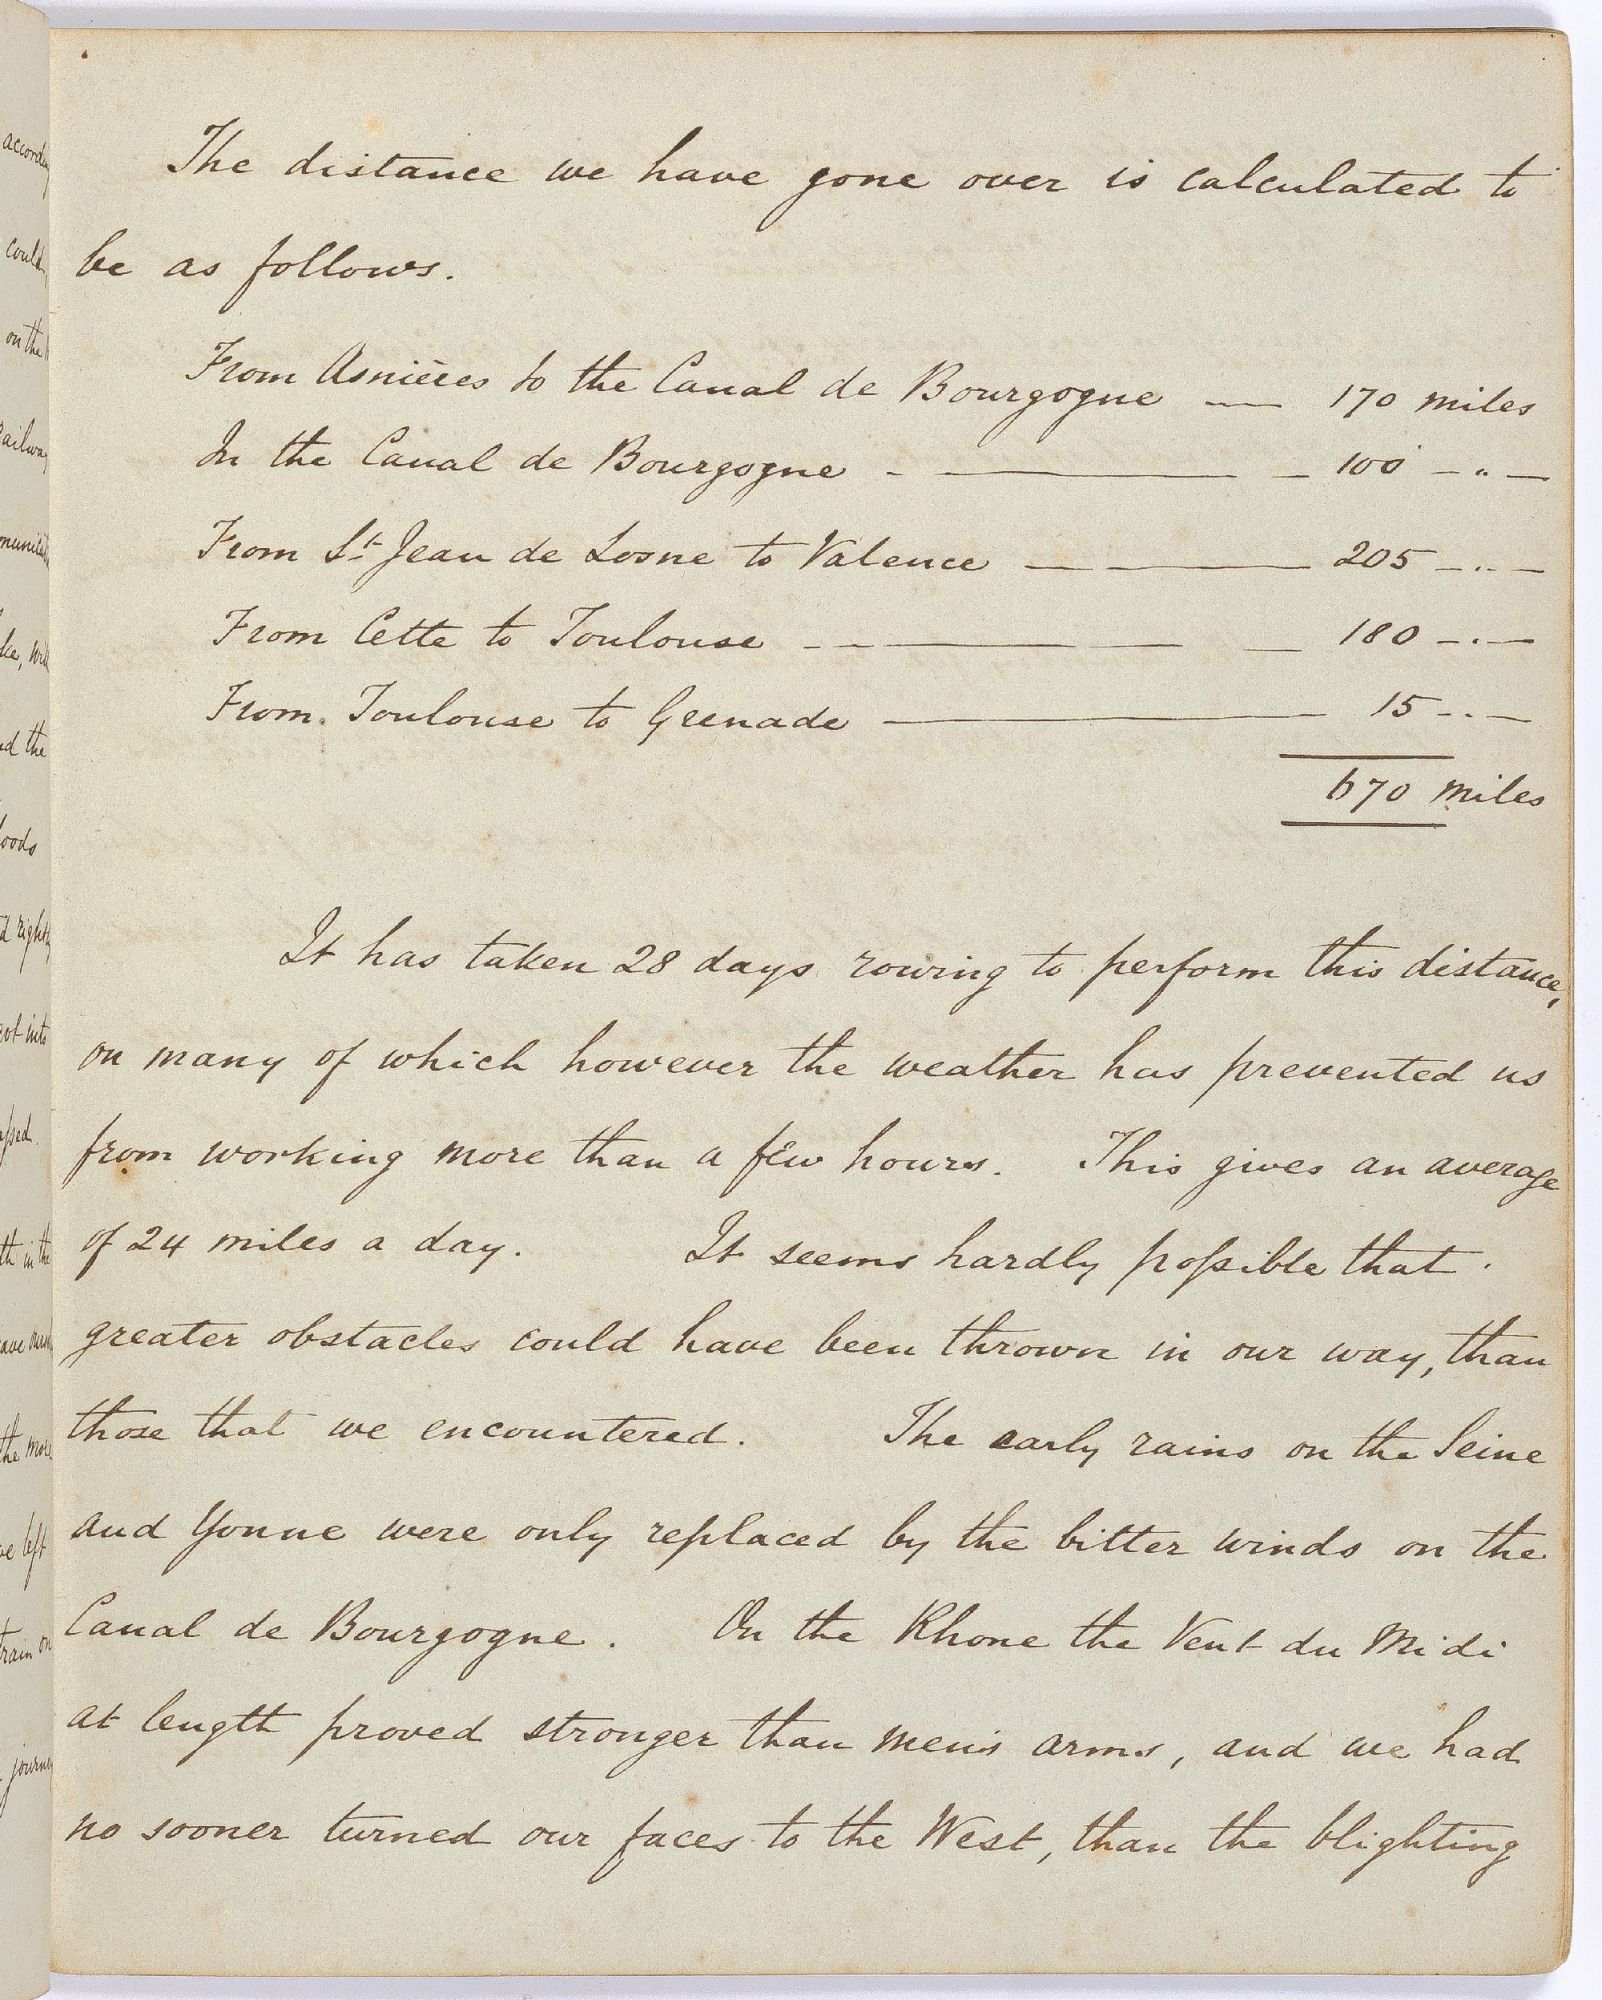 The distance we have gone over is calculated to
be as follows.
From Asnières to the Canal de Bourgogne — 170 miles
In the Canal de Bourgogne - — — 100 - " -
From St Jean de Losne to Valence — — — 205 - " -
From Cette to Toulouse - - — — — 180 - " -
From Toulouse to Grenade — 15 - " -
670 miles
It has taken 28 days rowing to perform this distance,
on many of which however the weather has prevented us
from working more than a few hours. This gives an average
of 24 miles a day. It seems hardly poſsible that
greater obstacles could have been thrown in our way, than
those that we encountered. The early rains on the Seine
and Yonne were only replaced by the bitter winds on the
Canal de Bourgogne. On the Rhone the Vent du Midi
at length proved stronger than men's arms, and we had
no sooner turned our faces to the West, than the blighting
could
on the
railway
nd the
into
in the
the more
left
train on